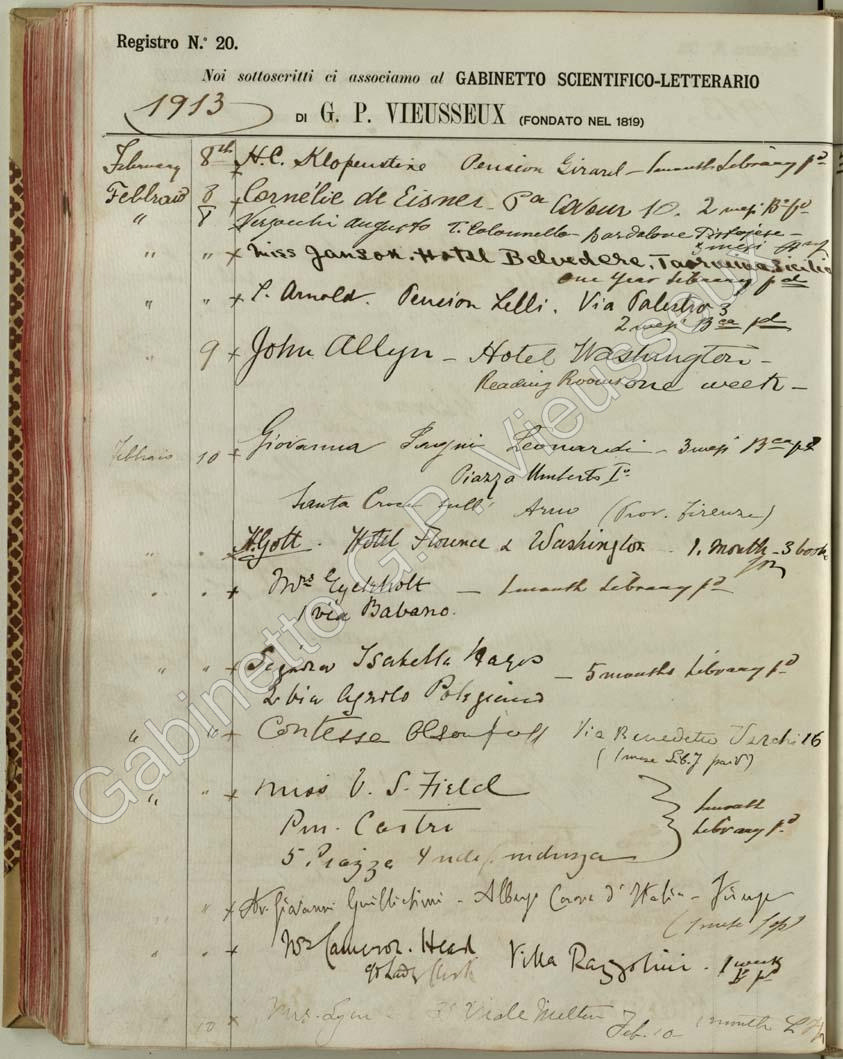 Registro N.° 20.
Noi sottoscritti ci associamo al GABINETTO SCIENTIFICO-LETTERARIO
1913
DI G. P. VIEUSSEUX (FONDATO NEL 1819)
February 8th H.C. Klopenstine Pension Girard - 1 month Library pd
Febbraio 8 Cornélie de Eisner - Pa Cavour 10. 2 mesi Bca pd
" 8 Augusto T. Colonnello Bardalone Pistoiese -
3 mesi
" " Miss Janson. Hotel Belvedere, Taormina Sicilia
one Year Library pd
" " Arnold. Pension Lelli. Via Palestro 3
2 mesi Bca pd
" 9 John Allyn - Hotel Washington -
Reading Rooms one week -
Febbraio 10 Giovanna Leonardi - 3 mesi Bca pd
Piazza Umberto Io
Santa Croce sull' Arno (Prov. Firenze)
" " Gott. Hotel Florence & Washington. 1. month - 3 books
" " Mrs Eyckholt - 1 month Library pd
1 via Babano.
" " Signora Isabella Hayes
- 5 months Library pd
2 Via Agnolo Poliziano
" 10 Contessa Via Benedetto Varchi 16
(1 mese paid)
" " Miss V. S. Field
1 month
Pon. Castri
Library pd
5. Piazza Independenza
" Dr. Giovanni - Albergo Corona d'Italia - Firenze
(1 mese
" " Cameron. Head Villa Razzolini. 1 week
pd
c/o Lady
10 Mrs. Viale Feb. 10 1 month
Gabinetto G.P. Vieusseux